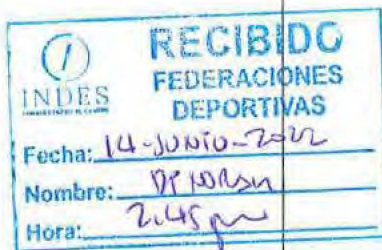 RECIBIDO
FEDERACIONES
DEPORTIVAS
INDES
Fecha: 14-JUNIO-2022
Nombre:
Hora: 2:45 pm